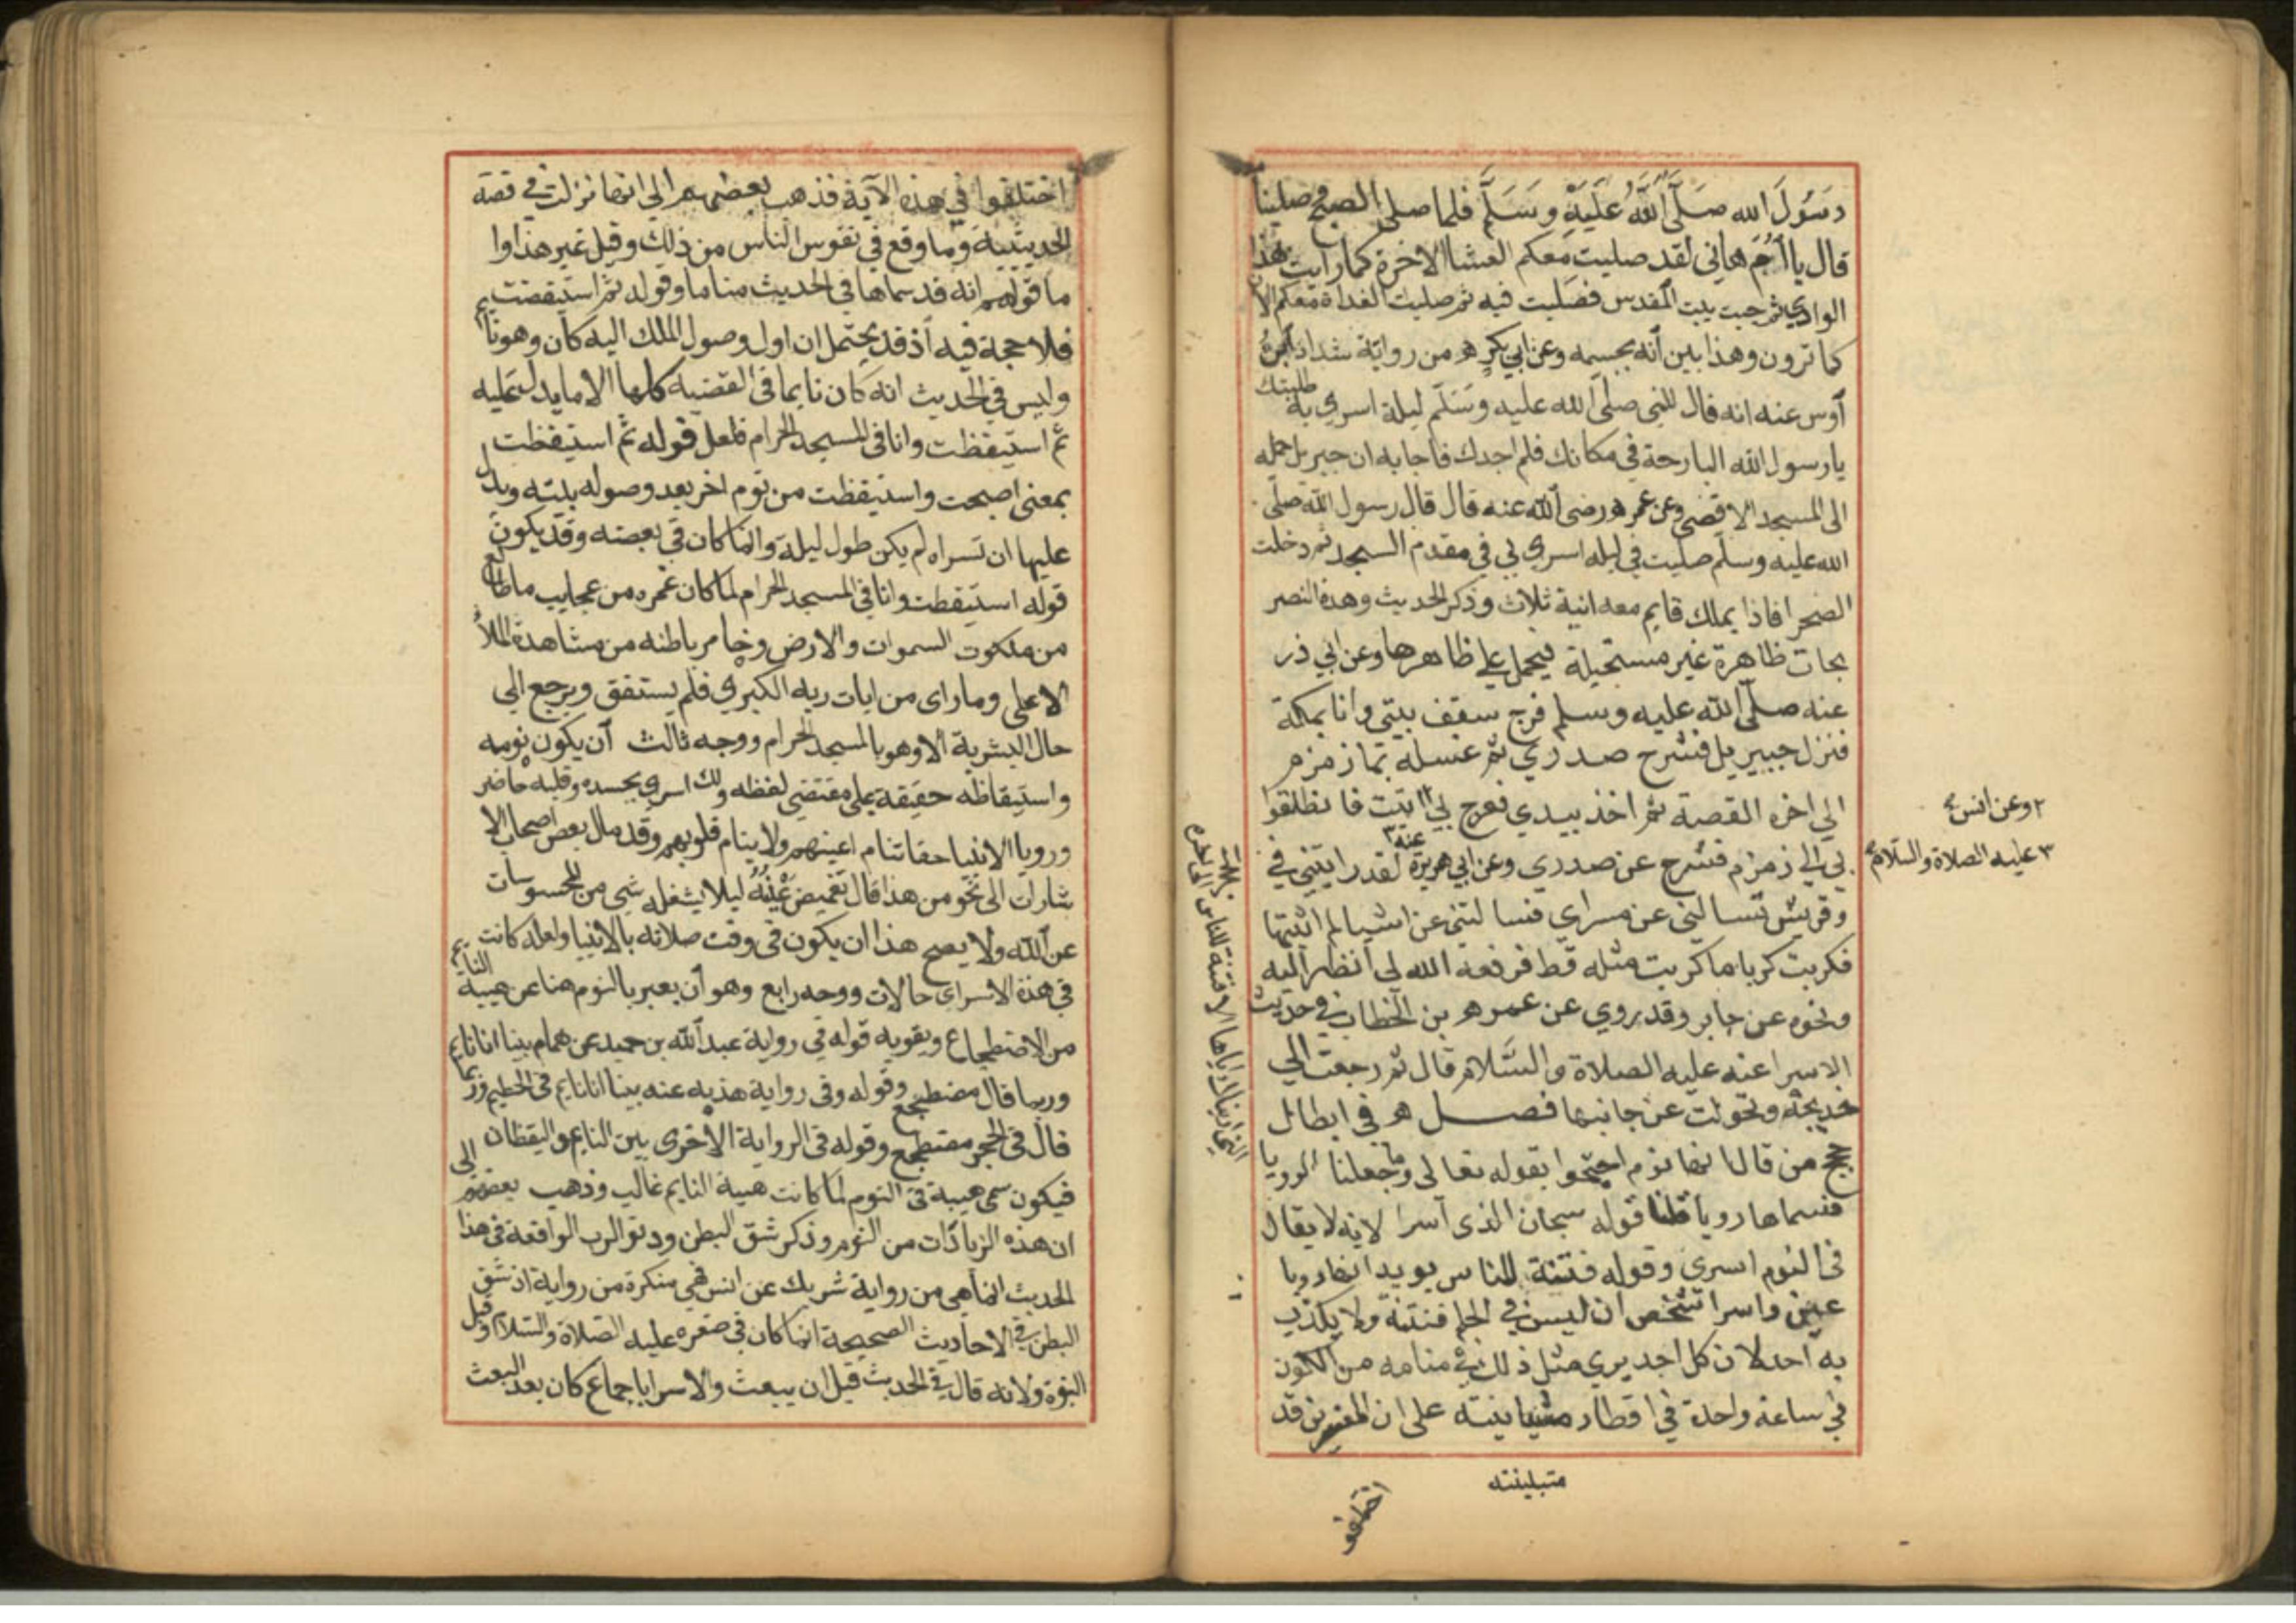 رَسُولَ الله صَلَّى اللَّهُ عَلَيْهِ وَسَلَّمَ فلما صلى الصبح وصلينا
قال يا أم هانى لقد صليت معكم العشا الاخرة كما رايت بهذا
الوادي ثم جيت بيت المقدس فصليت فيه ثم صليت الغداة معكم الان
كما ترون وهذا بين أنه بجسمه وعن ابي بكر من رواية شداد ابن
أوس عنه انه قال للنبى صلى الله عليه وسَلّم ليلة اسري به طلبتك
يا رسول الله البارحة في مكانك فلم اجدك فاجابه ان جبريل حمله
الى المسجد الاقصى وعن عمر رضى الله عنه قال قال رسول الله صلى
الله عليه وسلم صليت في ليله اسري بي في مقدم المسجد ثم دخلت
الصخرا فاذا بملك قايم معه انية ثلاث وذكر الحديث وهذه النصر
بحات ظاهرة غير مستحيلة فيحمل على ظاهرها وعن ابي ذر
عنه صلى الله عليه وسلم فرج سقف بيتي وانا بمكة
فنزل جبيريل فشرح صدري ثم غسله بما زمزم
الي اخر القصة ثم اخذ بيدي فعرج بي اتيت فانطلقوا
٢ وعن انس
بي الي زمزم فشرح عن صدري وعن ابي هريرة عنه٣ لقد رايتني في
٣ عليه الصلاة والسّلام
وقريش تسالني عن مسراي فسالتني عن اشيا لم اثبتها
فكربت كربا ما كربت مثله قط فرفعه الله لي أنظر اليه
ونحوه عن جابر وقد روي عن عمر بن الخطاب في حديث
الاسرا عنه عليه الصلاة والسَّلام قال ثم رجعت الي
خديجة وتحولت عن جانبها فصل في ابطال
حجج من قال انها نوم احتجوا بقوله تعالى وما جعلنا الرويا
التي اريناك اياها الا فتنة للناس
فسماها رويا قلنا قوله سبحان الذى أسرا لانه لا يقال
فى النوم اسرى وقوله فتنة للناس يويد انها رويا
عين واسرا شخص ان ليس في الحلم فتنة ولا يكذب
به احد لان كل احد يري مثل ذلك في منامه من الكون
في ساعة واحدة في اقطار متباينته على ان المفسرين قد
متباينته
اختلفو
اختلفوا في هذه الآية فذهب بعضهم الي انها نزلت في قصة
الحديبية وما وقع في نفوس الناس من ذلك وقيل غير هذا وا
ما قولهم انه قد سماها في الحديث مناما وقوله ثم استيقضت
فلا حجة فيه اذ قد يحتمل ان اول وصول الملك اليه كان وهو نايم
وليس في الحديث انه كان نايما فى القضية كلها الا ما يدل عليه
ثم استيقظت وانا فى المسجد الحرام فلعل قوله ثم استيقظت
بمعنى اصبحت واستيقظت من نوم اخر بعد وصوله بيته ويدل
عليها ان تسراه لم يكن طول ليلة وانما كان في بعضه وقد يكون
قوله استيقظت وانا في المسجد الحرام لما كان غمره من عجايب ما طالع
من ملكوت السموات والارض وخامر باطنه من مشاهدة الملأ
الاعلى وما راى من ايات ربه الكبري فلم يستفق ويرجع الي
حال البشرية الا وهو بالمسجد الحرام ووجه ثالث أن يكون نومه
واستيقاظه حقيقة على مقتضي لفظه ولك اسري بجسده وقلبه حاضر
ورويا الانبيا حقا تنام اعينهم ولا ينام قلوبهم وقد مال بعض اصحاب الا
شارات الى نحو من هذا قال تغميض عينه ليلا يشغله شي من المحسوسات
عن الله ولا يصح هذا ان يكون في وقت صلاته بالانبيا ولعله كانت
فى هذه الاسراى حالات ووجه رابع وهو أن يعبر بالنوم هنا عن هيية النايم
من الاضطجاع ويقويه قوله في رواية عبد الله بن حميد عن همام بينا انا نايم
وربما قال مضطجع وقوله وفى رواية هذبه عنه بينا انا نايم فى الحطيم وربما
قال فى الحجر مضطجع وقوله فى الرواية الاخرى بين النايم واليقظان
فيكون سمى هيية فى النوم لما كانت هيية النايم غالب وذهب بعضهم الى
ان هذه الزيادات من النوم وذكر شق البطن ودنو الرب الواقعة فى هذا
الحديث انما هي من رواية شريك عن انس فهي منكرة من رواية اذ شق
البطن في الاحاديث الصحيحة انما كان في صغره عليه الصلاة والسّلام وقبل
النبوة ولانه قال في الحديث قبل ان يبعث والاسرا باجماع كان بعد البعث